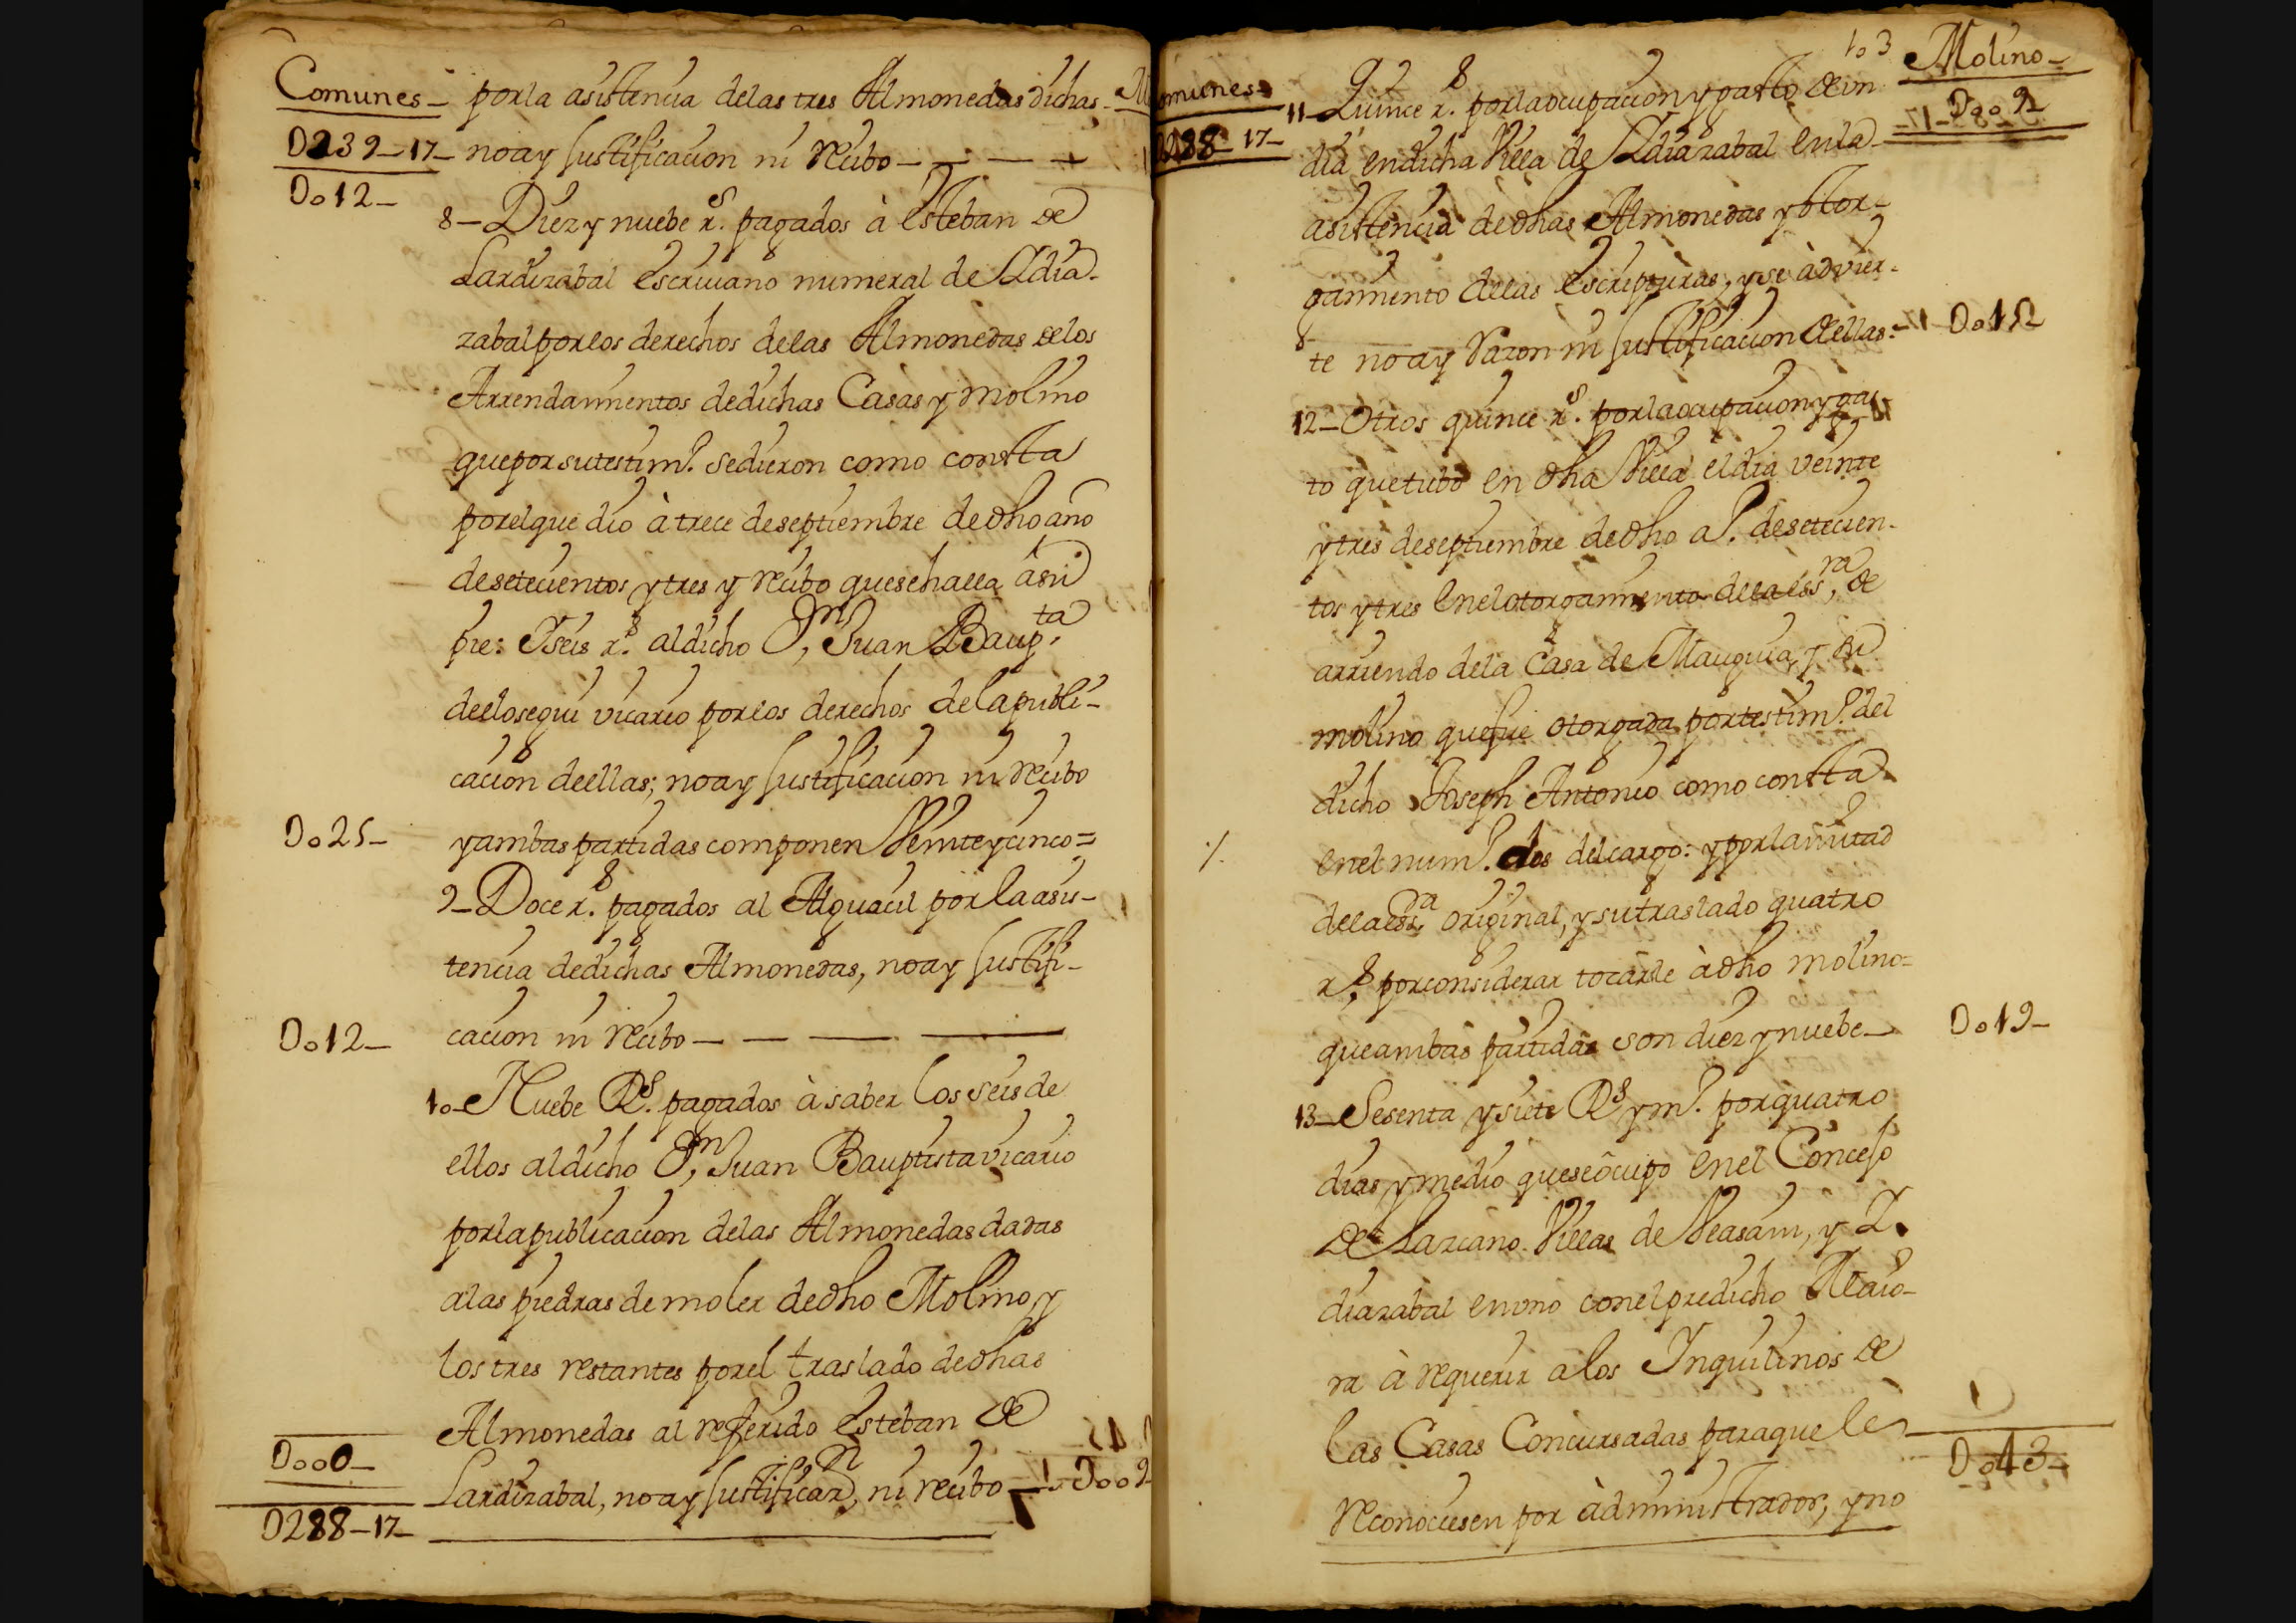 Comunes_ por la asistencia delas tres Almonedas dichas_
D239_17_ no ay Justificacion ni recibo_ _ _ _
Do12_
8_ Diez y nuebe rs. pagados à esteban de
Lardizabal escriuano numeral de Ydia_
zabal por los derechos delas Almonedas delos
Arrendamientos de dichas Casas y molino
que por su testimo. se dieron como consta
por el que dio à trece de septiembre de dho año
de setecientos y tres y recibo que se halla asu
pie: Y seis rs. al dicho Dn, Juan Baupta,
de elosegui vicario por los derechos dela publi_
cacion de ellas; no ay Justificacion ni recibo
Do25_ y ambas partidas componen Veinte y cinco=
9_ Doce rs. pagados al Alguacil por la asis_
tencia de dichas Almonedas, no ay Justifi_
Do12_ cacion ni recibo_ _ _ _
1o_ Nuebe Rs. pagados à saber los seis de
ellos al dicho Dn, Juan Bauptista vicario
por la publicacion delas Almonedas dadas
a las piedras de moler de dho Molino, y
los tres restantes por el traslado de dhas
Almonedas al referido esteban de
Dooo_ Lardizabal, no ay Justificaon, ni recibo_ Doo9
D288_17_
omunes_
288_17_
1o3 Molino_
Doo9_
11_ Quince rs. por la ocupacion y gasto de vn
dia en dicha Villa de Ydiazabal en la
asistencia de dhas Almonedas y otor_
gamiento delas escripturas, y se àdvier_
te no ay razon ni Justificacion de ellas_ Do15_
12_ Otros quince rs. por la ocupacion y gas
to que tubo en dha Villa el dia veinte
y tres de septiembre de dho ao. de setecien_
tos y tres en el otorgamiento dela essra, de
arriendo dela Casa de Mauguia, y su
molino que fue otorgada por testimo. del
dicho Joseph Antonio como consta
en el numo. dos del cargo: y por la mitad
dela essra, original, y su traslado quatro
rs, por considerar tocarle à dho molino_
que ambas partidas son diez y nuebe_ Do19_
13_ Sesenta y siete Rs y mo. por quatro
dias y medio que se ôcupo en el Concejo
de Lazcano Villas de Veasain, y Y.
diazabal en vno con el predicho Altaio_
ra à requerir a los Inquilinos de
las Casas Concursadas para que le
reconociesen por àdministrador, y no
Do43_